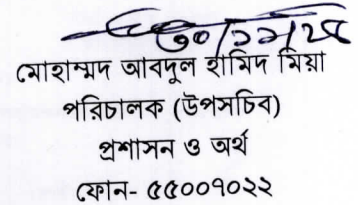 ৩০/১১/২৫
মোহাম্মদ আবদুল হামিদ মিয়া
পরিচালক (উপসচিব)
প্রশাসন ও অর্থ
ফোন- ৫৫০০৭০২২